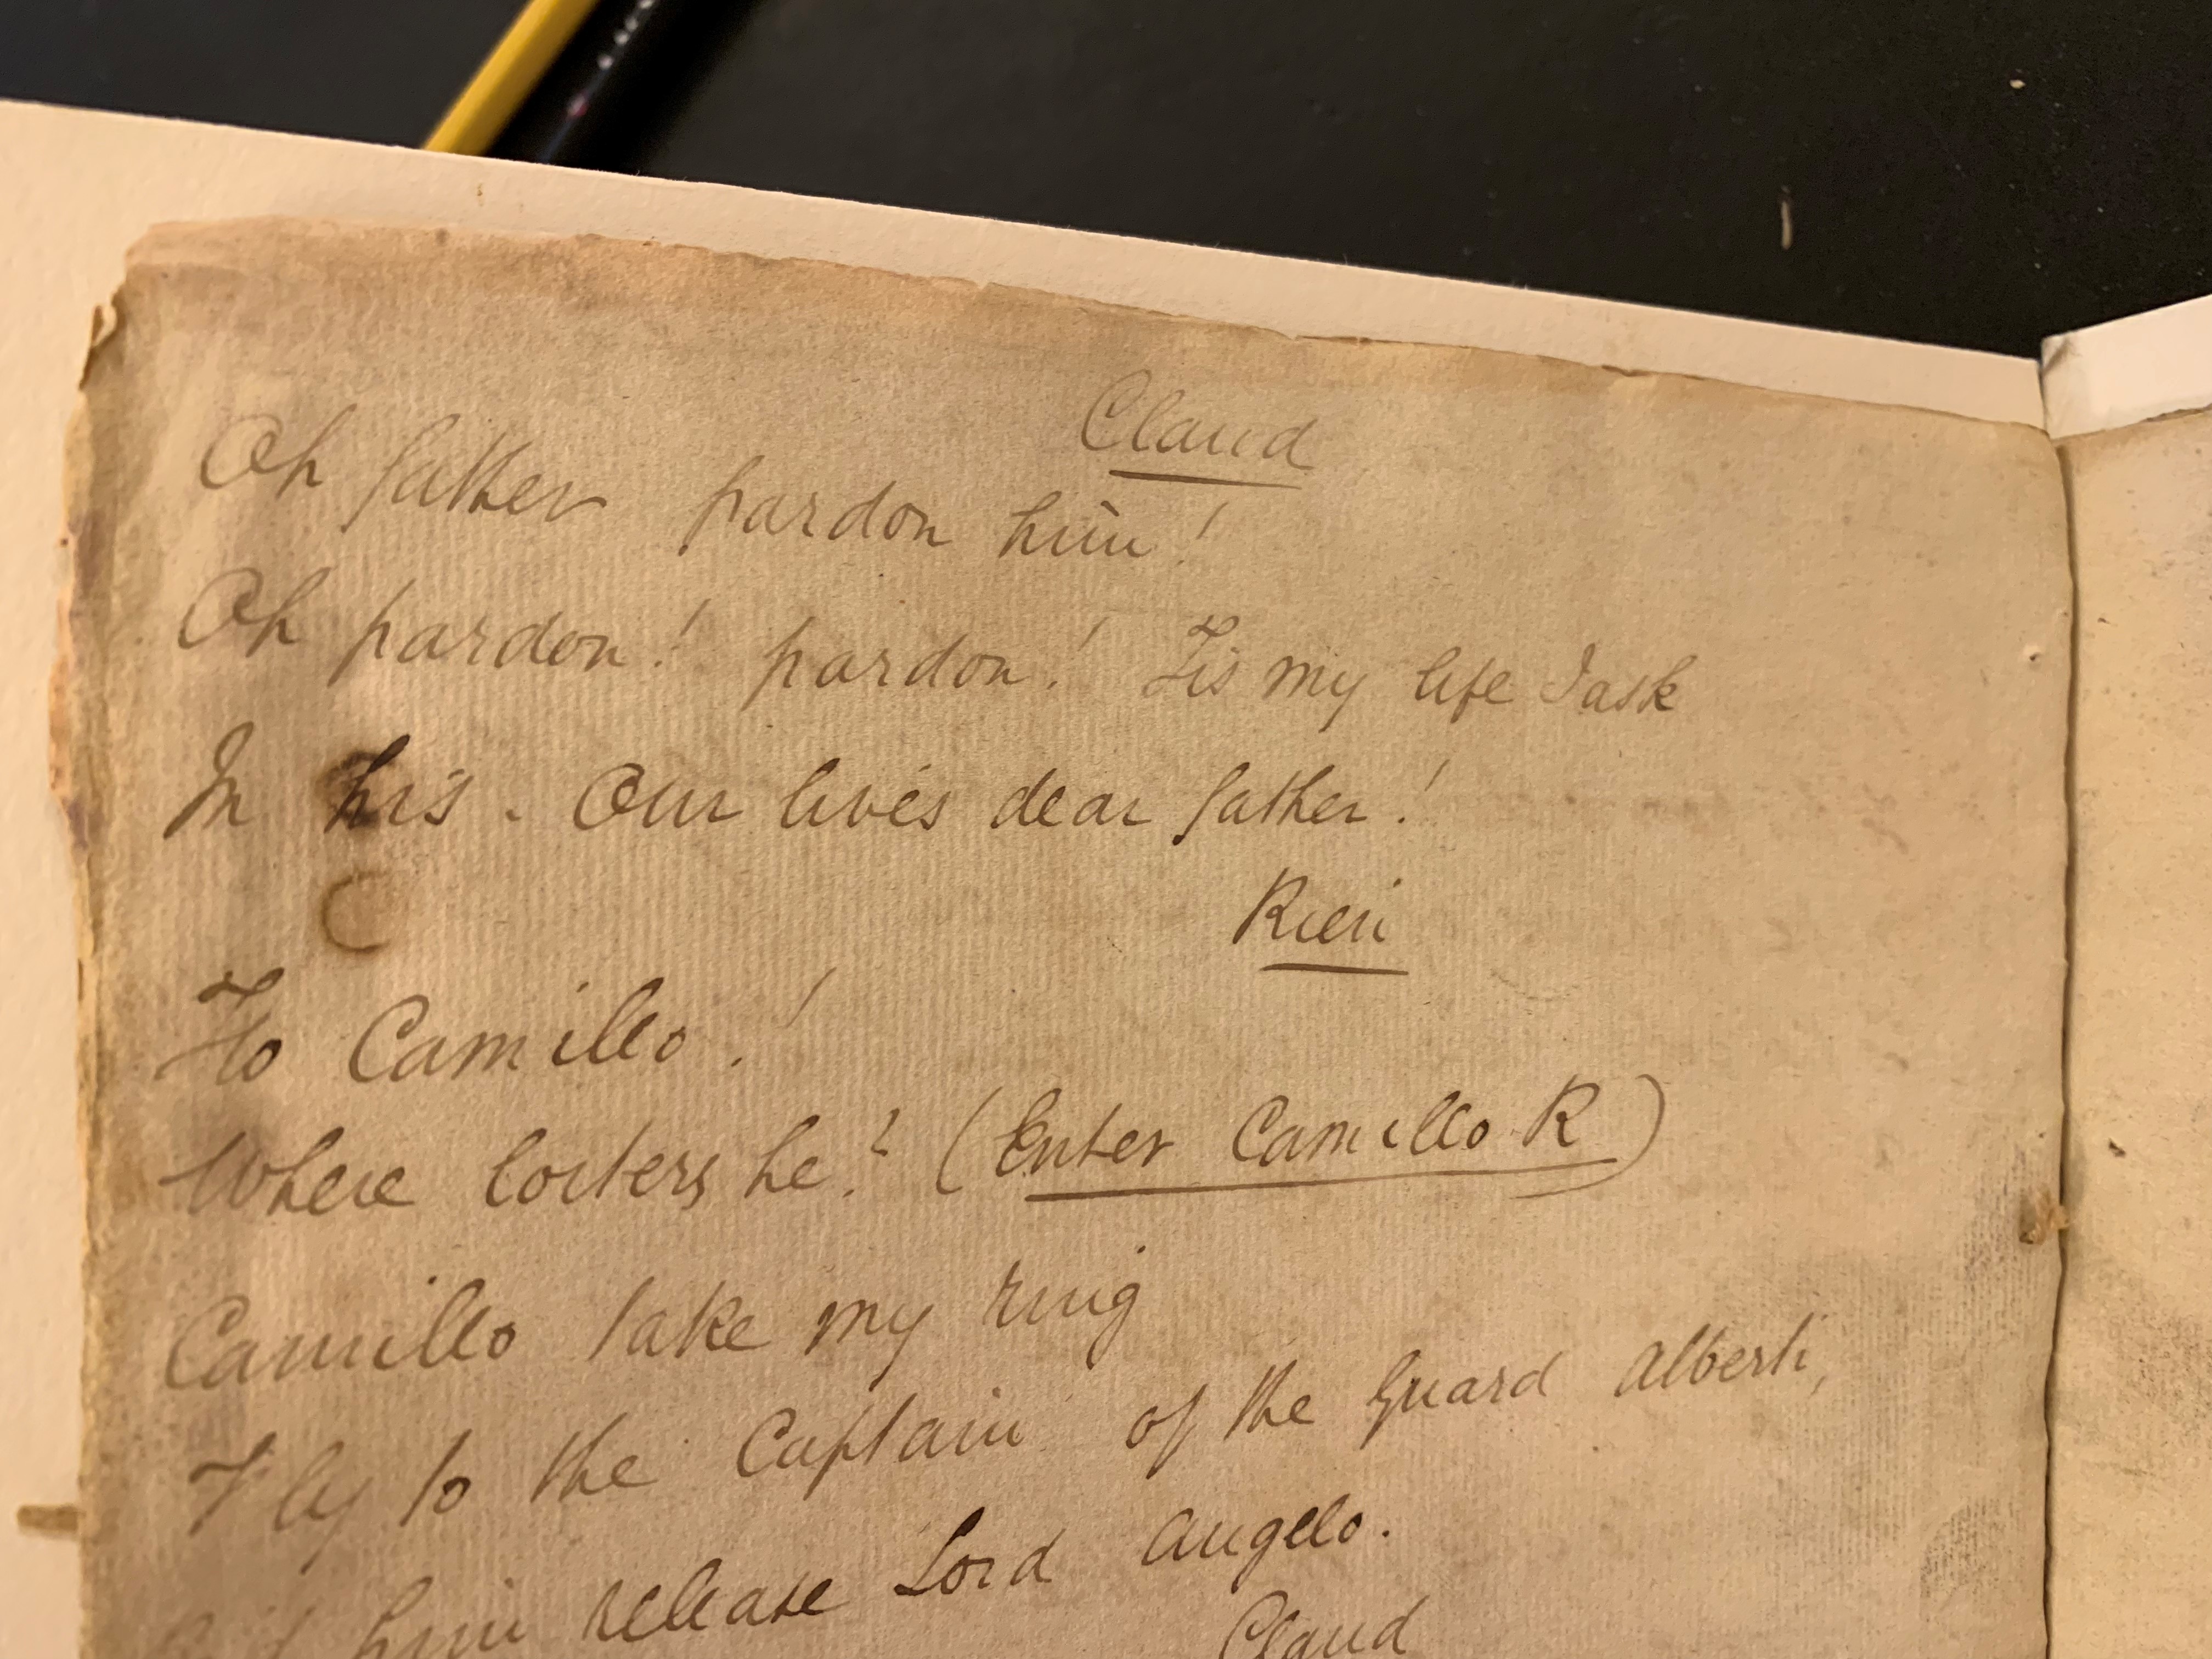 Claud
Oh father pardon him!
Oh pardon! pardon! Tis my life I ask
In his. Our lives dear father!
Rieri
Ho Camillo!
Where loiters he? (Enter Camillo R)
Camillo take my ring
Fly to the Captain of the Guard Alberti,
him release Lord Angelo.
Claud